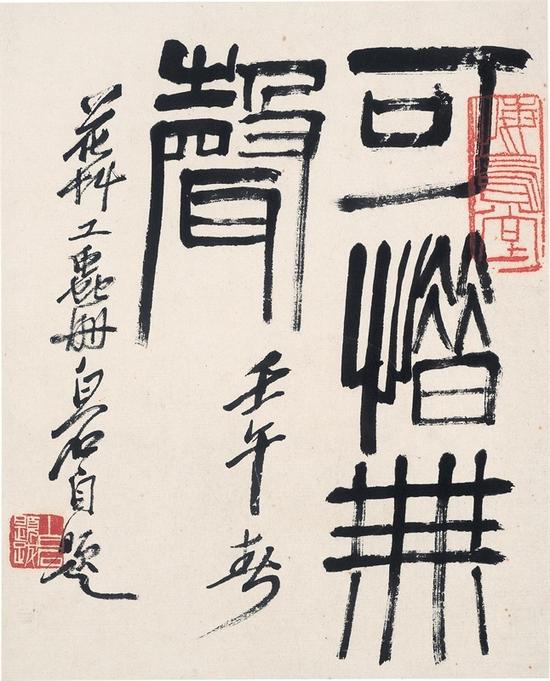 可惜無
聲
壬午春
花草工蟲册白石自題